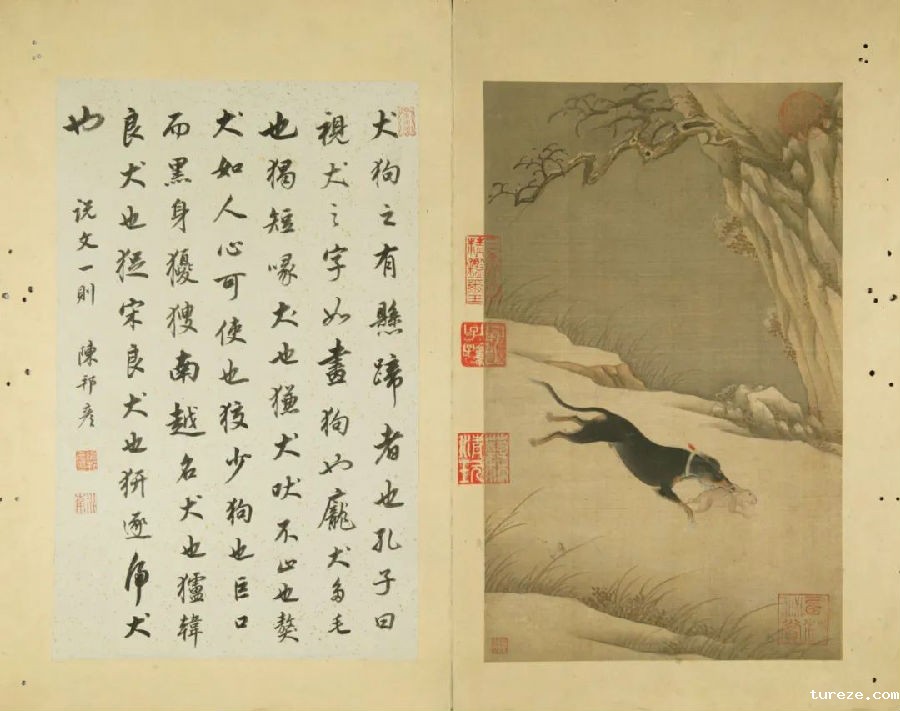 犬狗之有懸蹄者也孔子曰
視犬之字如畫狗也龐犬多毛
也猲短喙犬也㺌犬吠不止也獒
犬如人心可使也狡少狗也巨口
而黑身獿獀南越名犬也獹韓
良犬也宋良犬也逐虎犬
也
説文一則 陳邦彥
tureze.com